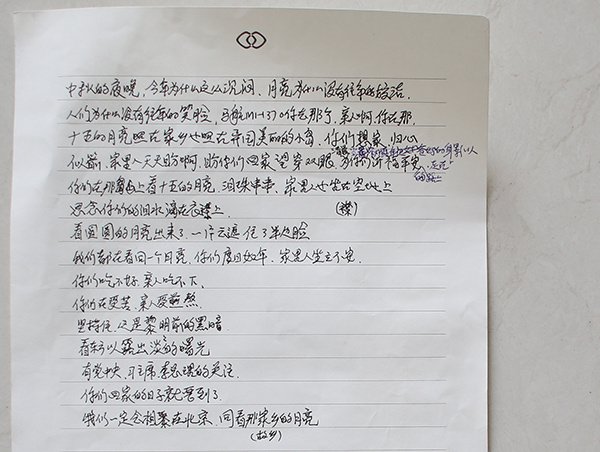 中秋的夜晚，今年为什么这么沉闷、月亮为什么没有往年的皎洁、
人们为什么没有往年的笑脸 马航MH370你在那了，亲人啊，你在那、
十五的月亮照在家乡也照在异国美丽的小岛，你们想家、归心
似箭、家里人天天盼啊，盼你们回家望穿双眼 为你们祈福平安
你们在那岛上看十五的月亮，泪珠串串，家里人也坐在空地上
思念你们的泪水滴在衣襟上 (襟)
看圆圆的月亮出来了一片云遮住了半边脸
我们都在看同一个月亮，你们度日如年，家里人坐立不安
你们吃不好 亲人吃不下、
你们在受苦、亲人受煎熬
坚持住，这是黎明前的黑暗
看东方以露出淡淡的曙光
有党中央、习主席、李总理的关注
你们回家的日子就要到了
我们一定会相聚在北京，同看那家乡的月亮
(故乡)